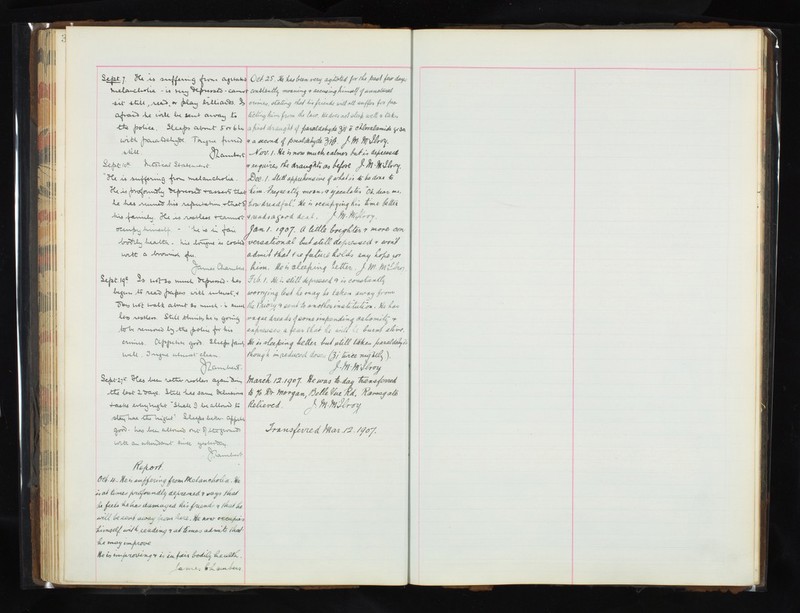 Sept. 7 He is suffering from agitated
melancholia - is very depressed - cannot
sit still, read, or play billiards. Is
afraid he will be sent away to
the police. Sleeps about 5 or 6 hrs
with paraldehyde. Tongue furred
still. J Chambers
Sept. 10th Medical Statement
He is suffering from melancholia.
He is profoundly depressed & asserts that
he has ruined his reputation & that of
his family. He is restless & cannot
occupy himself - he is in fair
bodily health - his tongue is coated
with a brownish fur.
James Chambers
Sept. 19th Is not so much depressed - has
begun to read papers with interest, &
does not walk about so much - is much
less restless. Still thinks he is going
to be removed by the police for his
crimes. Appetite good. Sleeps fairly
well. Tongue almost clean.
J Chambers.
Sept. 27th Has been rather restless again during
the last 2 days. Still has same delusions
& asks every night "Shall I be allowed to
stay here the night". Sleeps better. Appetite
good - has been allowed out of the grounds
with an attendant since yesterday.
J Chambers
Report
Oct. 10. He is suffering from Melancholia. He
is at times profoundly depressed & says that
he feels he has damaged his friends & that he
will be sent away from here. He now occupies
himself with reading & at times admits that
he may improve
He is improving & is in fair bodily health.
James Chambers
Oct. 25. He has been very agitated for the past few days
constantly moaning & accusing himself of unnatural
crimes, stating that his friends will all suffer for
him from the law. He does not sleep well & takes
a first draught of paraldehyde 3ii & chloralamide
& a second of paraldehyde. J. M. McIlroy.
Nov. 1. He is now much calmer but is depressed
& requires the draughts as before J. M. McIlroy.
Dec. 1. Still apprehensive of what is to be done to
him. Frequently moans & ejaculates "Oh dear me.
How dreadful." He is occupying his time better
& reads a good deal. J. M. McIlroy.
Jan 1. 1907. A little brighter & more con
versational but still depressed & won't
admit that the future holds any hope for
him. He is sleeping better. J. M. McIlroy
Feb. 1. He is still depressed & is constantly
worrying lest he may be taken away from
the Priory & sent to another institution. He has
vague dreads of some impending calamity &
expresses a fear that he will be burnt alive.
He is sleeping better but still takes paraldehyde
though in reduced doses (3i twice nightly).
J. M. McIlroy
March 12. 1907. He was to day transferred
to % Dr. Morgan, Belle Vue Rd, Ramsgate
Relieved. J. M. McIlroy
Transferred Mar. 12. 1907.